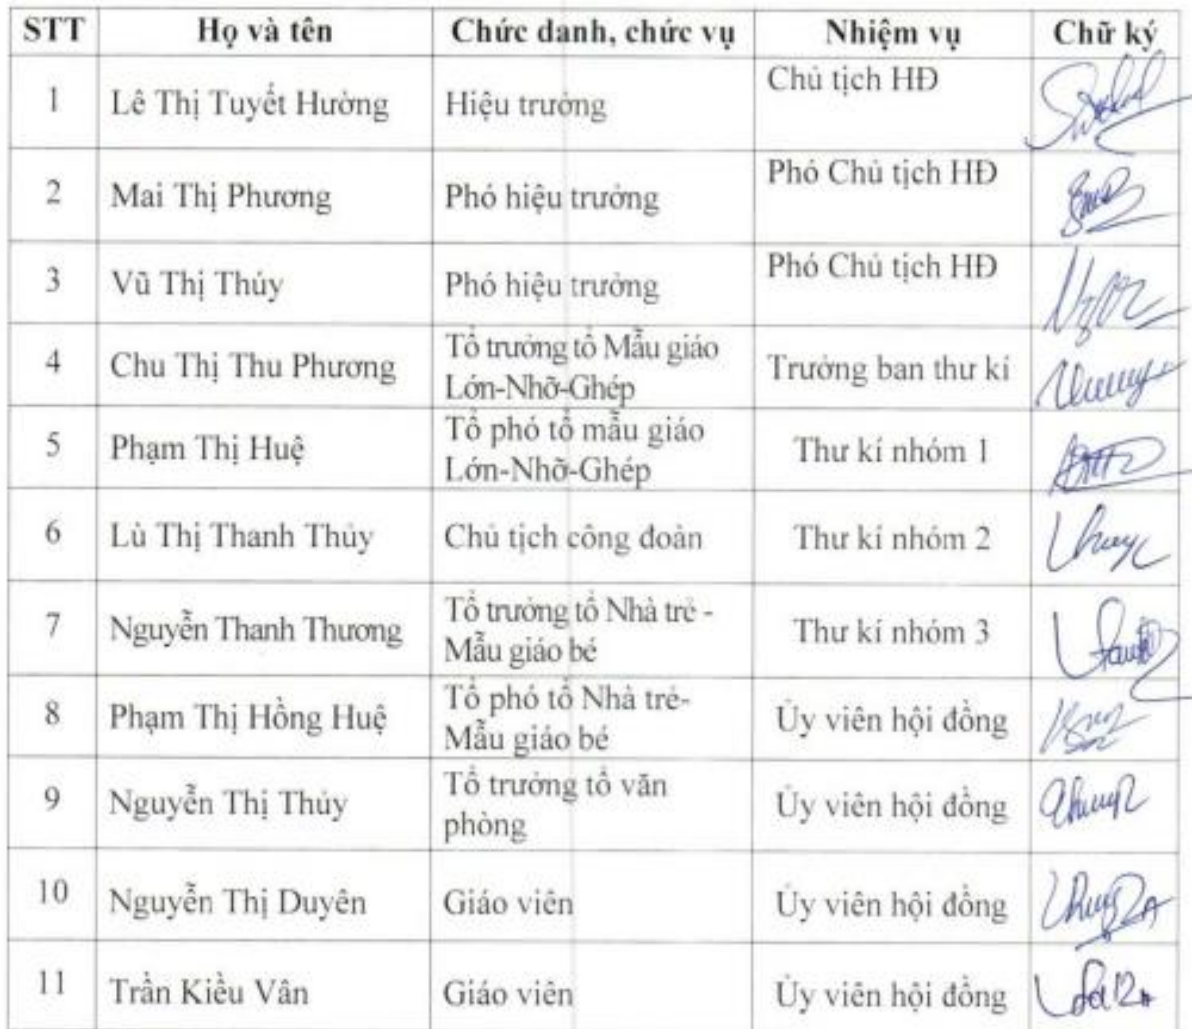 STT Họ và tên Chức danh, chức vụ Nhiệm vụ Chữ ký
1 Lê Thị Tuyết Hường Hiệu trưởng Chủ tịch HĐ
2 Mai Thị Phương Phó hiệu trưởng Phó Chủ tịch HĐ
3 Vũ Thị Thủy Phó hiệu trưởng Phó Chủ tịch HĐ
4 Chu Thị Thu Phương Tổ trưởng tổ Mẫu giáo Trưởng ban thư kí
Lớn-Nhỡ-Ghép
5 Phạm Thị Huệ Tổ phó tổ mẫu giáo Thư kí nhóm 1
Lớn-Nhỡ-Ghép
6 Lù Thị Thanh Thủy Chủ tịch công đoàn Thư kí nhóm 2
7 Nguyễn Thanh Thương Tổ trưởng tổ Nhà trẻ - Thư kí nhóm 3
Mẫu giáo bé
8 Phạm Thị Hồng Huệ Tổ phó tổ Nhà trẻ- Ủy viên hội đồng
Mẫu giáo bé
9 Nguyễn Thị Thủy Tổ trưởng tổ văn Ủy viên hội đồng
phòng
10 Nguyễn Thị Duyên Giáo viên Ủy viên hội đồng
11 Trần Kiều Vân Giáo viên Ủy viên hội đồng